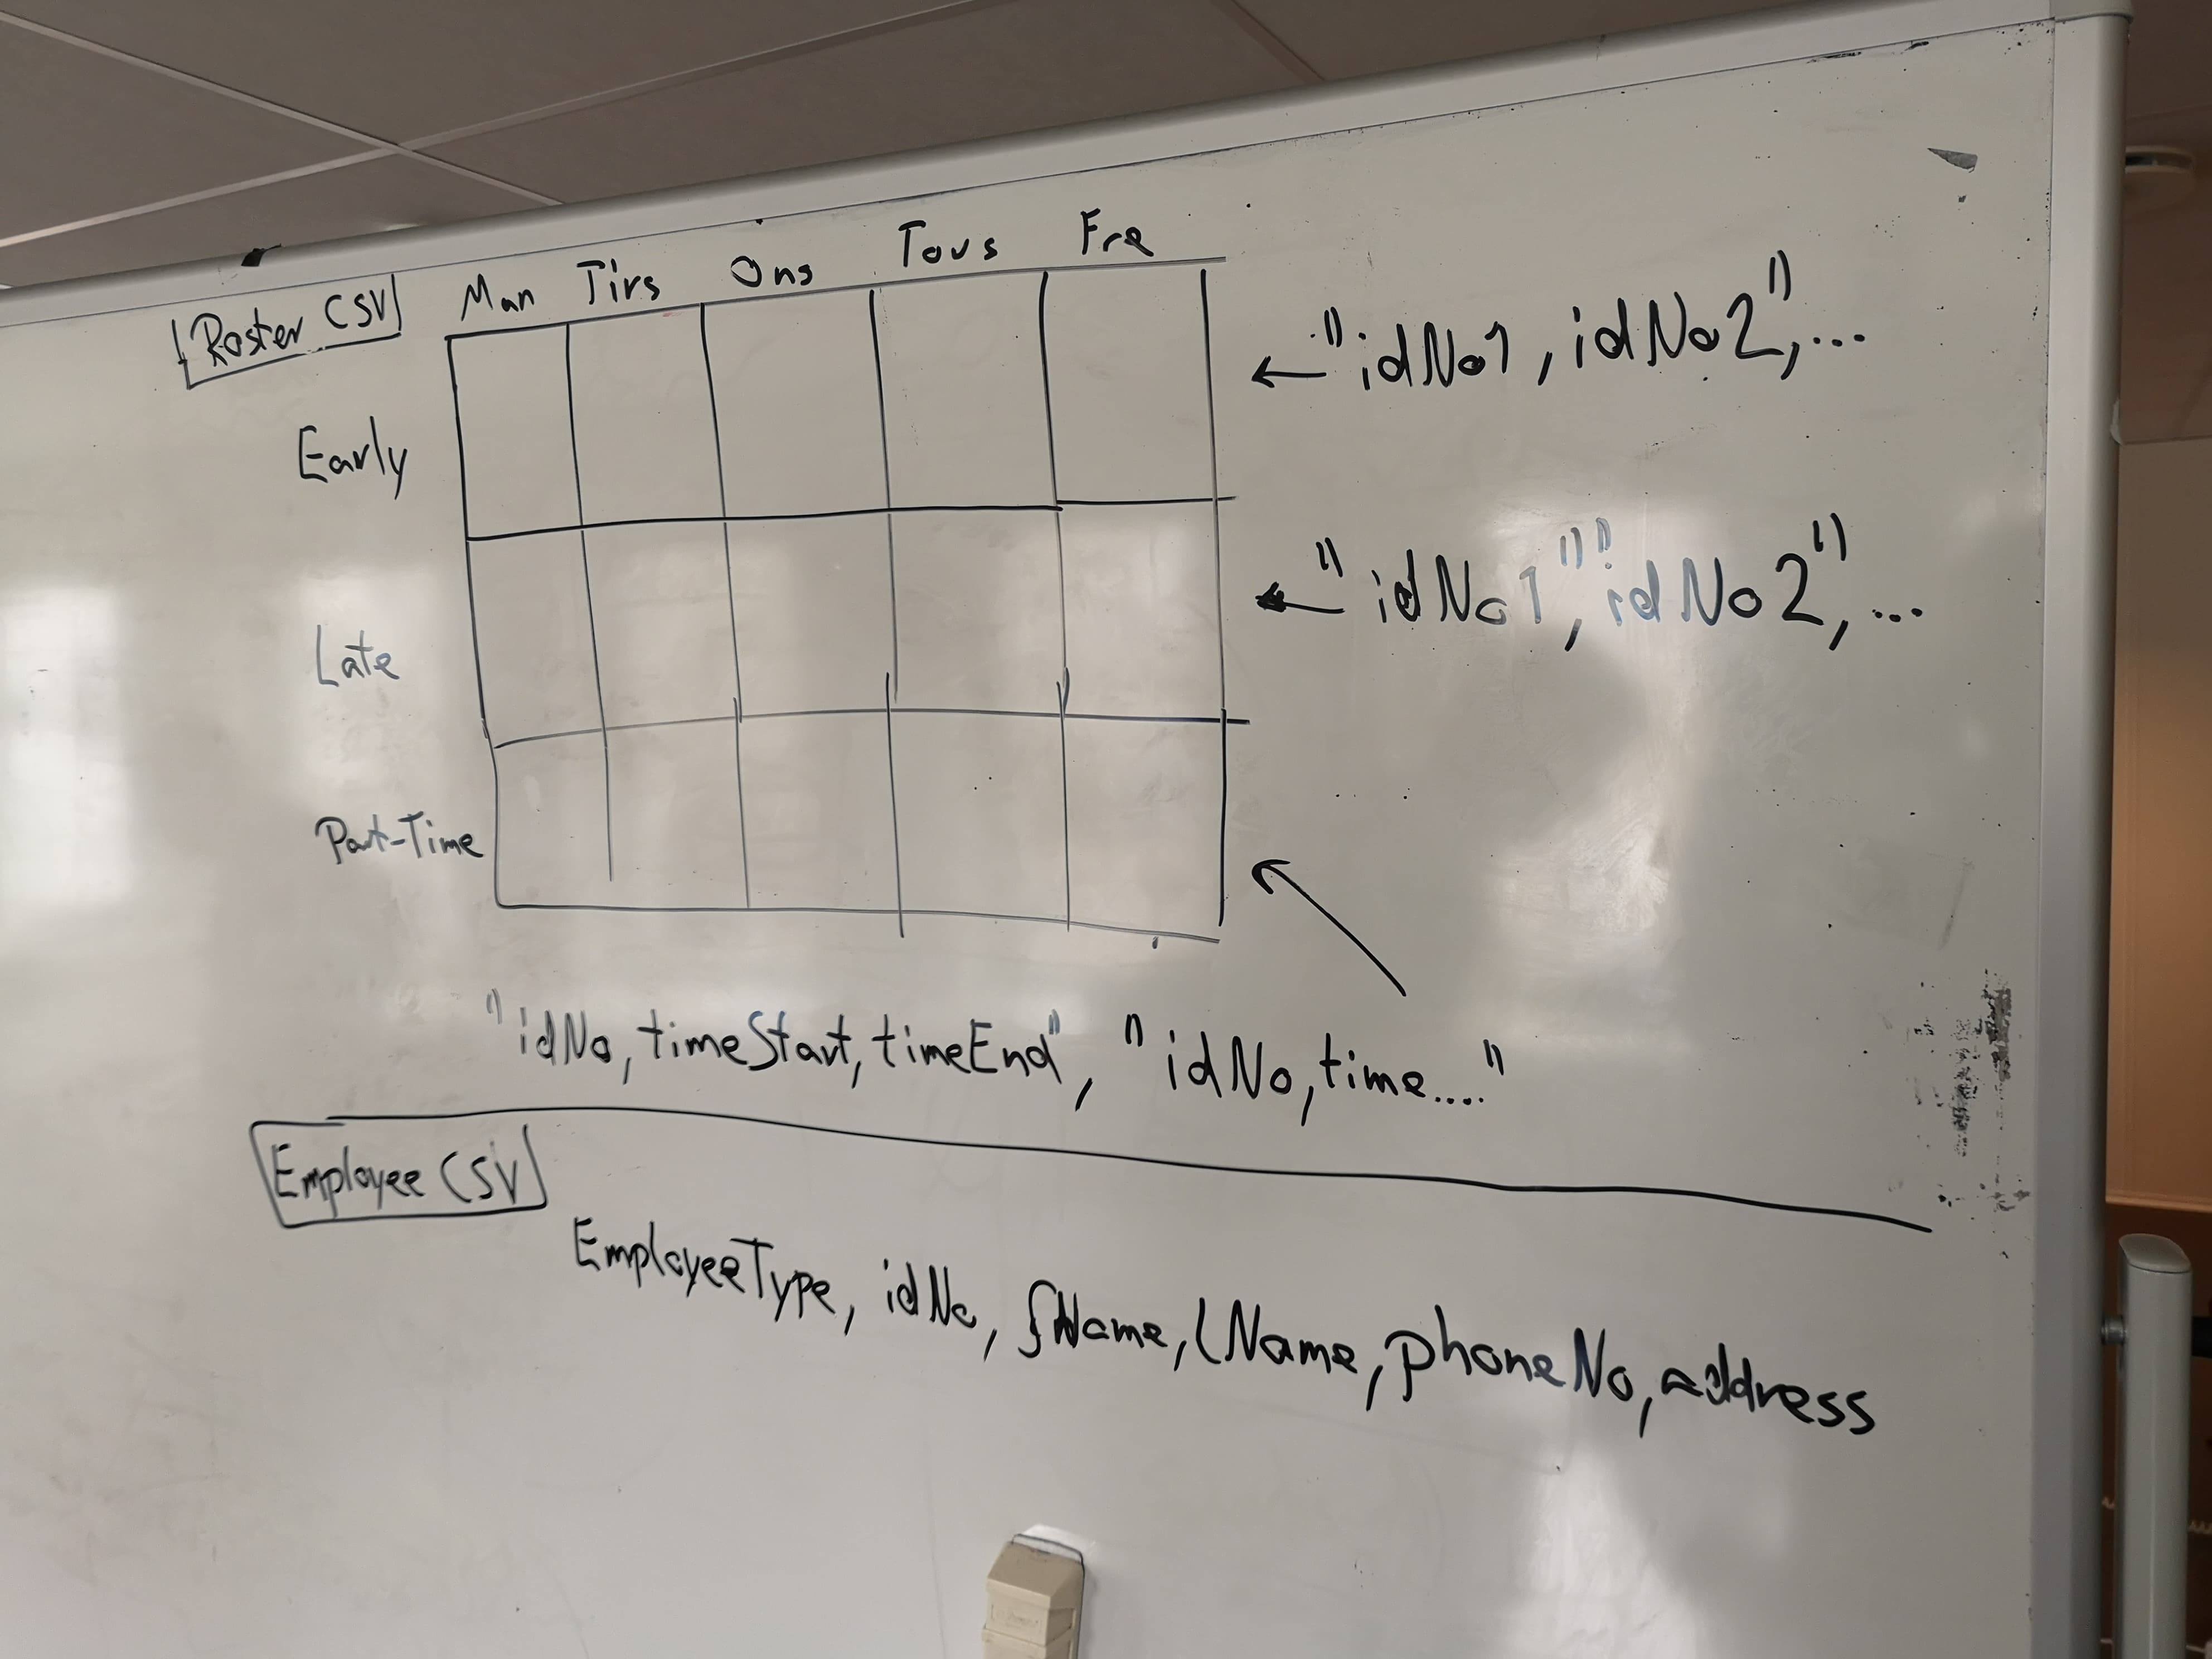 Roster CSV
Man Tirs Ons Tors Fre
Early
"idNo1, idNo2", ...
Late
"idNo1", "idNo2", ...
Part-Time
"idNo, timeStart, timeEnd", "idNo, time...."
Employee CSV
EmployeeType, idNo, fName, lName, phoneNo, address